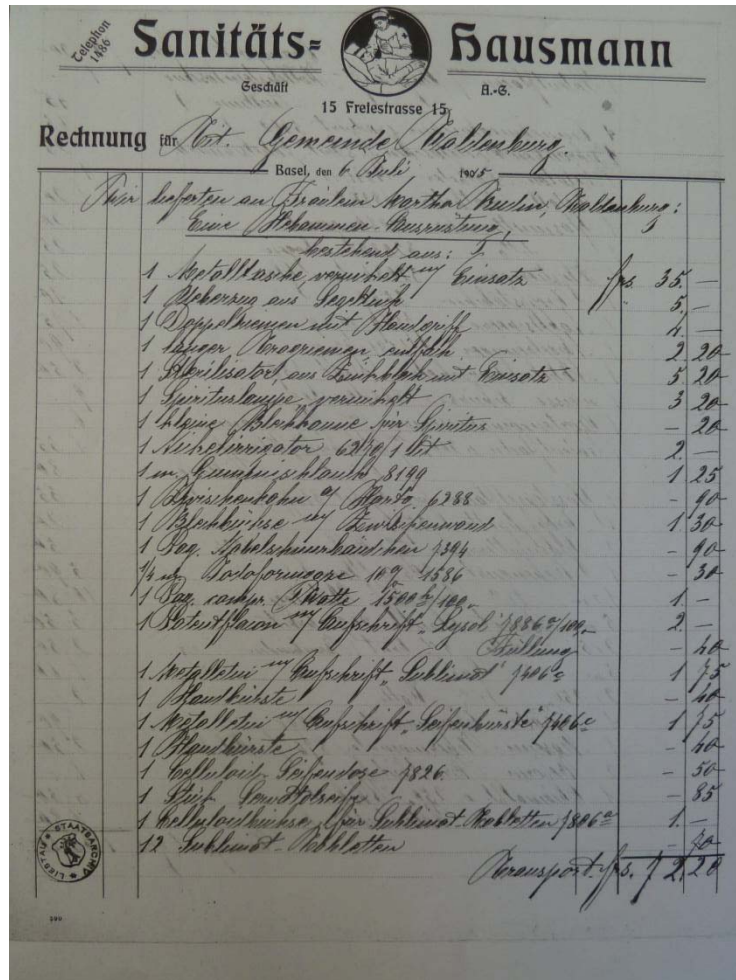 Telephon 1486
Sanitäts= Hausmann
Geschäft A.-G.
15 Freiestrasse 15
Rechnung für Tit. Gemeinde Waldenburg.
Basel, den 6. Juli 1905
Wir lieferten an Fräulein Martha Waldenburg:
Eine Hebammen-Ausrüstung,
bestehend aus:
1 Metalltasche vernickelt m/ Einsatz frs. 35. —
1 Ueberzug aus Segeltuch 5. —
1 Doppelriemen mit Handgriff 4. —
1 langer Tragriemen, einfach 2 20
1 Sterilisator, aus Zinkblech mit Einsatz 5 20
1 Spirituslampe, vernickelt 3 20
1 kleine Blechkanne für Spiritus — 20
1 Nickelirrigator 6270/1 Lit 2. —
1 m. Gummischlauch 8199 1 25
1 Zwischenhahn a/ Hartg. 6288 — 90
1 Blechbüchse m/ Zwischenwand 1 30
1 Paq. Nabelschnurbändchen 7394 — 90
Jodoformgaze 10% 1586 — 30
1 Paq. compr. Watte 1500 /100 1 —
1 Patentflacon m/ Aufschrift „Lysol" 7886 /100 2 —
Füllung — 40
1 Metalletui m/ Aufschrift „Sublimat" 7406 1 75
1 Handbürste — 40
1 Metalletui m/ Aufschrift „Seifenbürste" 7406 1 75
1 Handbürste — 40
1 Celluloid-Seifendose 7826 — 50
1 Stück — 85
1 Celluloidbüchse für Sublimat-Tabletten 7806 1. —
12 Sublimat-Tabletten — 70
Transport frs. 72.20
STAATSARCHIV LIESTAL